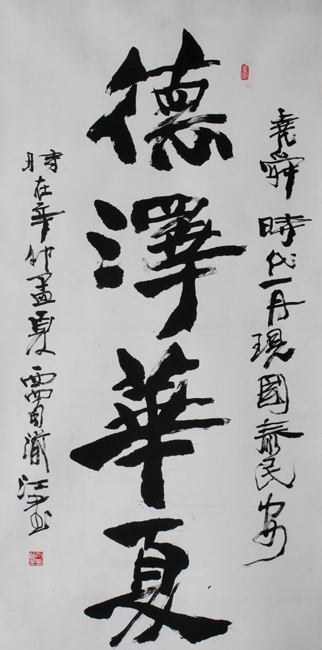 堯舜時代再現國泰民安
德澤華夏
時在辛卯孟夏 江書